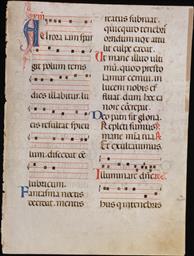 Aurora iam spar
git polum terris
dies illabitur. lu
cis resultat spicu
lum. discedat oē
lubricum.
Fantasma noctis
decidat. mentis
reatus subruat.
quicquid tenebris
horridum nox attu
lit culpe
Ut mane illud ulti
mū. quod presto
lamur cernui. in
lucem nobis ef
fluat. dum hoc ca
nore
Deo patri sit gloria.
Repleti sumus
mane mīa tua.
Et exultauimus.
Illuminare domine
hiis qui in tenebris